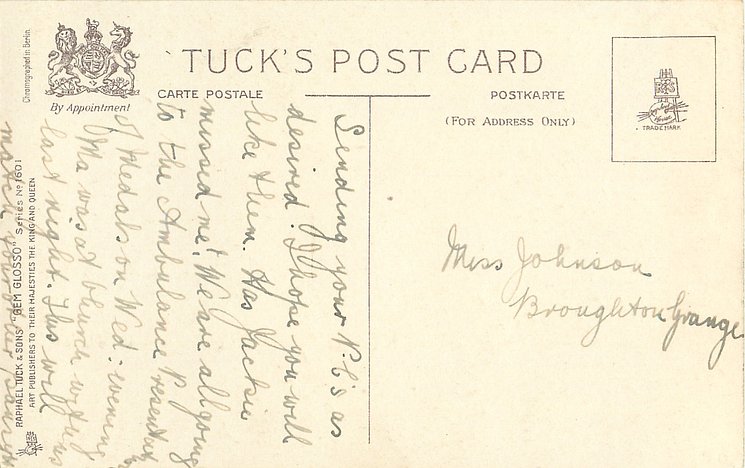 TUCK'S POST CARD
CARTE POSTALE
POSTKARTE
(FOR ADDRESS ONLY)
By Appointment
Chromographed in Berlin.
RAPHAEL TUCK & SONS' "GEM GLOSSO" Series No 1601
ART PUBLISHERS TO THEIR MAJESTIES THE KING AND QUEEN
TRADE MARK
Sending your P.C's as
desired. I hope you will
like them. Has Jackie
missed me? We are all going
to the Ambulance Presentation
of Medals on Wed: evening
Ma was at Church with us
last night. This will
match your other
Miss Johnson
Broughton Grange